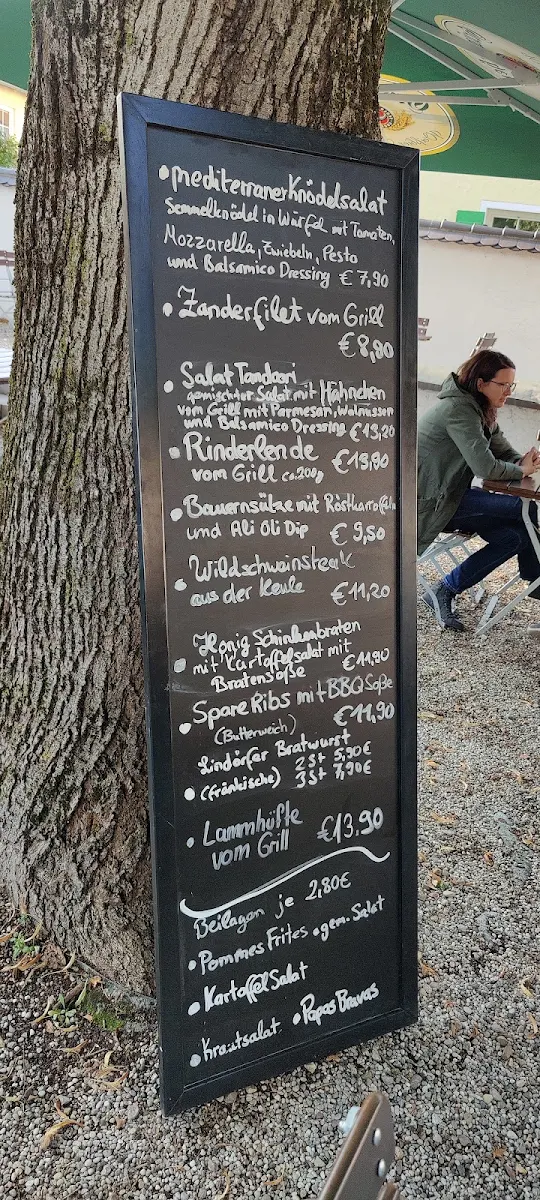 • mediterraner Knödelsalat
Semmelknödel in Würfel mit Tomaten,
Mozzarella, Zwiebeln, Pesto
und Balsamico Dressing € 7,90
• Zanderfilet vom Grill
€ 8,80
• Salat Tandoori
gemischter Salat mit Hähnchen
vom Grill mit Parmesan, Walnüssen
und Balsamico Dressing € 13,20
• Rinderlende
vom Grill ca. 200g € 19,90
• Bauernsülze mit Röstkartoffeln
und Ali Oli Dip € 9,50
• Wildschweinsteak
aus der Keule € 11,20
• Honig Schinkenbraten
mit Kartoffelsalat mit
Bratensoße € 11,90
• Spare Ribs mit BBQ Soße
(Butterweich) € 11,90
Lindörfer Bratwurst
• (fränkische) 2 St 5,90 €
3 St 7,90 €
• Lammhüfte
vom Grill € 13,90
Beilagen je 2,80 €
• Pommes Frites • gem. Salat
• Kartoffel Salat
• Krautsalat • Papas Bravas